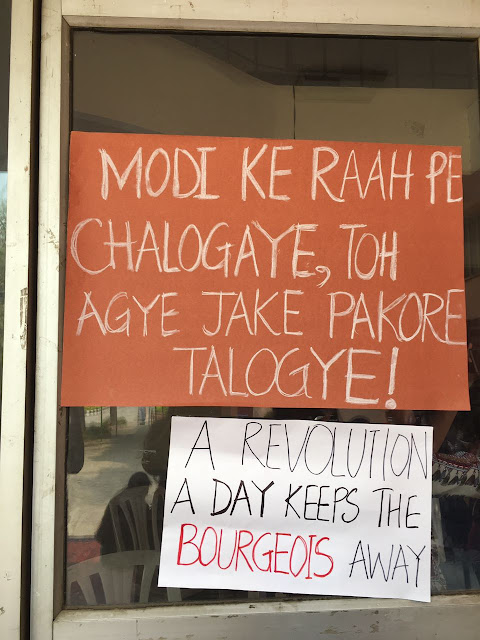 MODI KE RAAH PE
CHALOGAYE, TOH
AGYE JAKE PAKORE
TALOGYE!
A REVOLUTION
A DAY KEEPS THE
BOURGEOIS AWAY